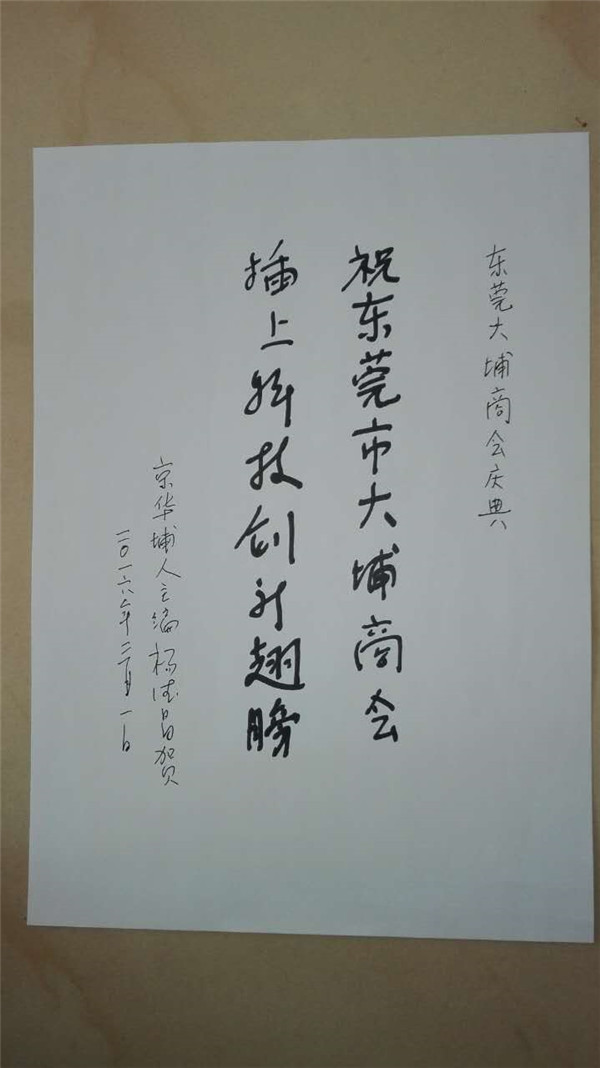 东莞大埔商会庆典
祝东莞市大埔商会
插上科技创新翅膀
京华埔人主编杨德昌贺
二〇一六年三月一日